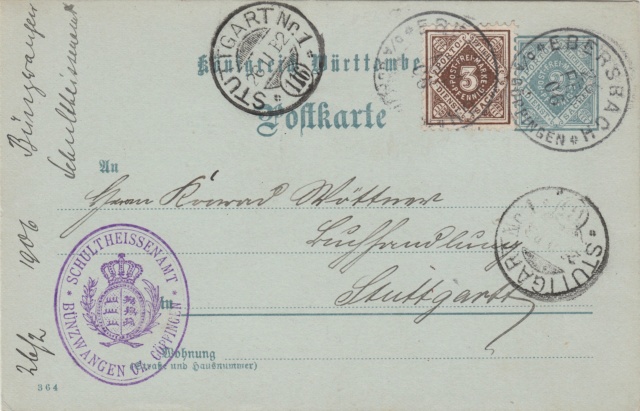 STUTTGART No 1
(116)
Königreich Württemberg
Postkarte
3
EBERSBACH
GÖPPINGEN
An
Herrn Konrad Wöttner
Buchhandlung
in
Stuttgart
STUTTGART No 1
Wohnung
(Straße und Hausnummer)
364
26/2 1906 Bünzwangen
Schultheissenamt
SCHULTHEISSENAMT
BÜNZWANGEN OA. GÖPPINGEN